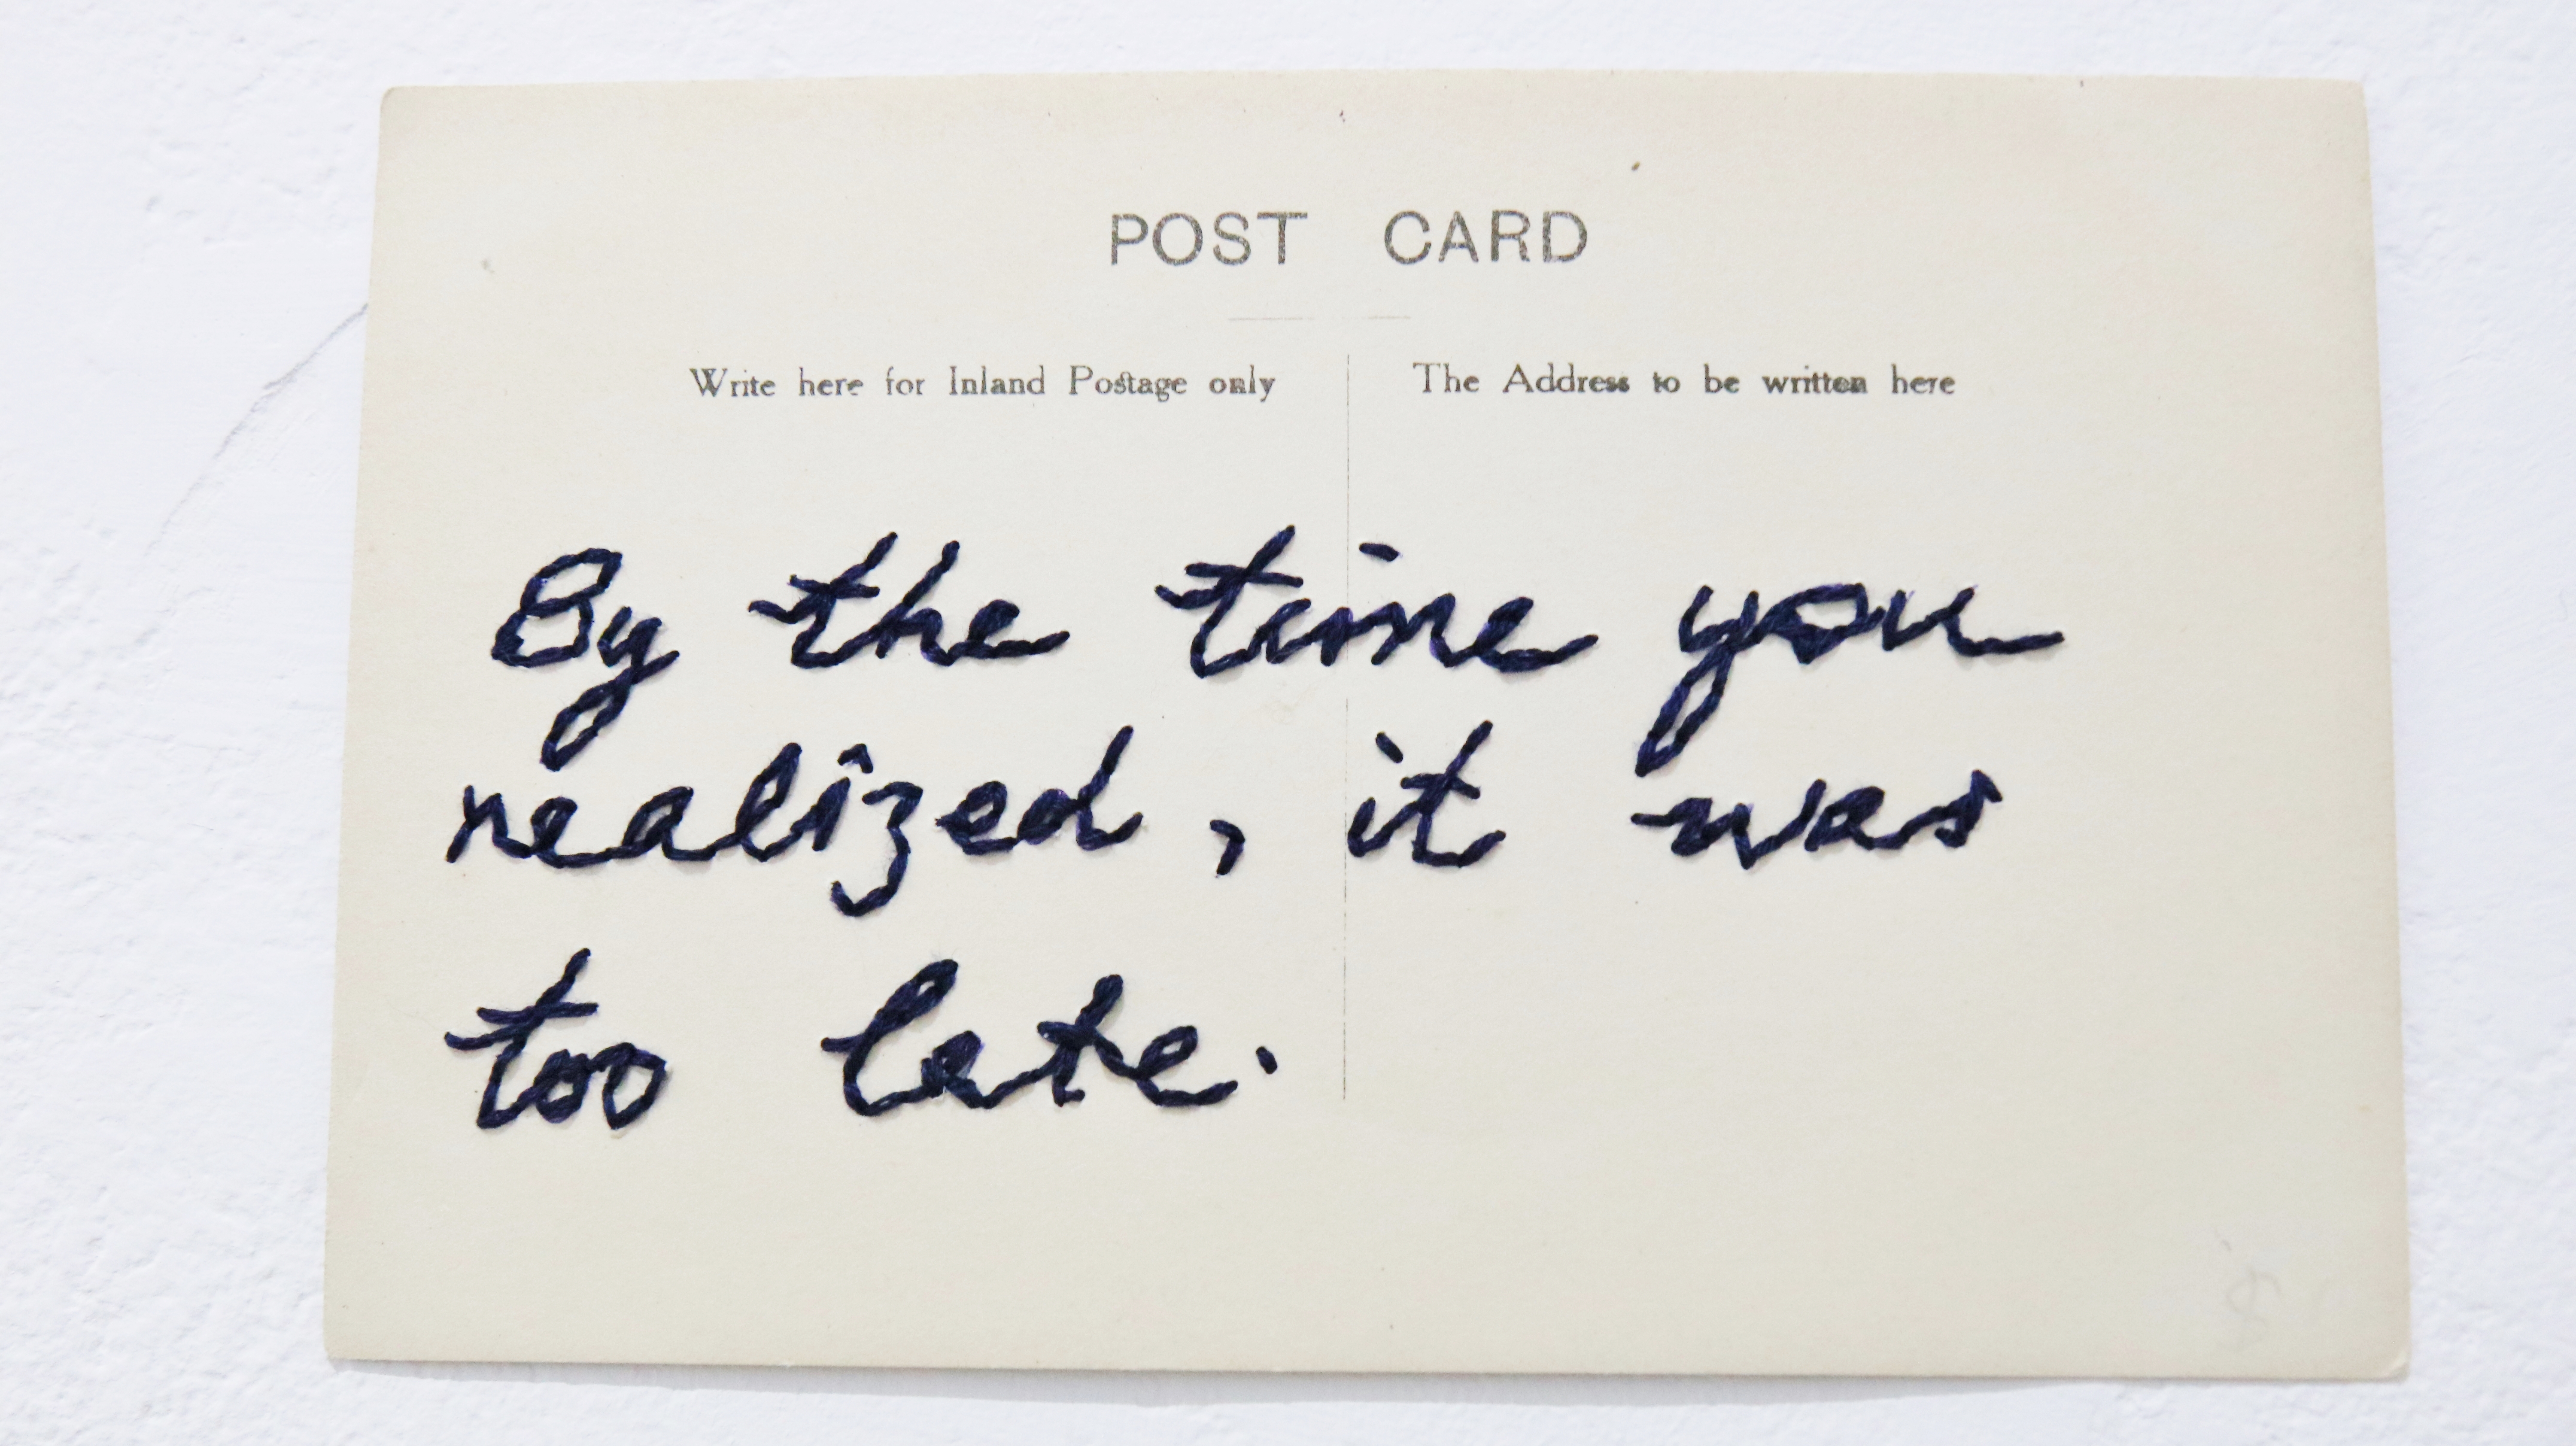 POST CARD
Write here for Inland Postage only
The Address to be written here
By the time you
realized, it was
too late.